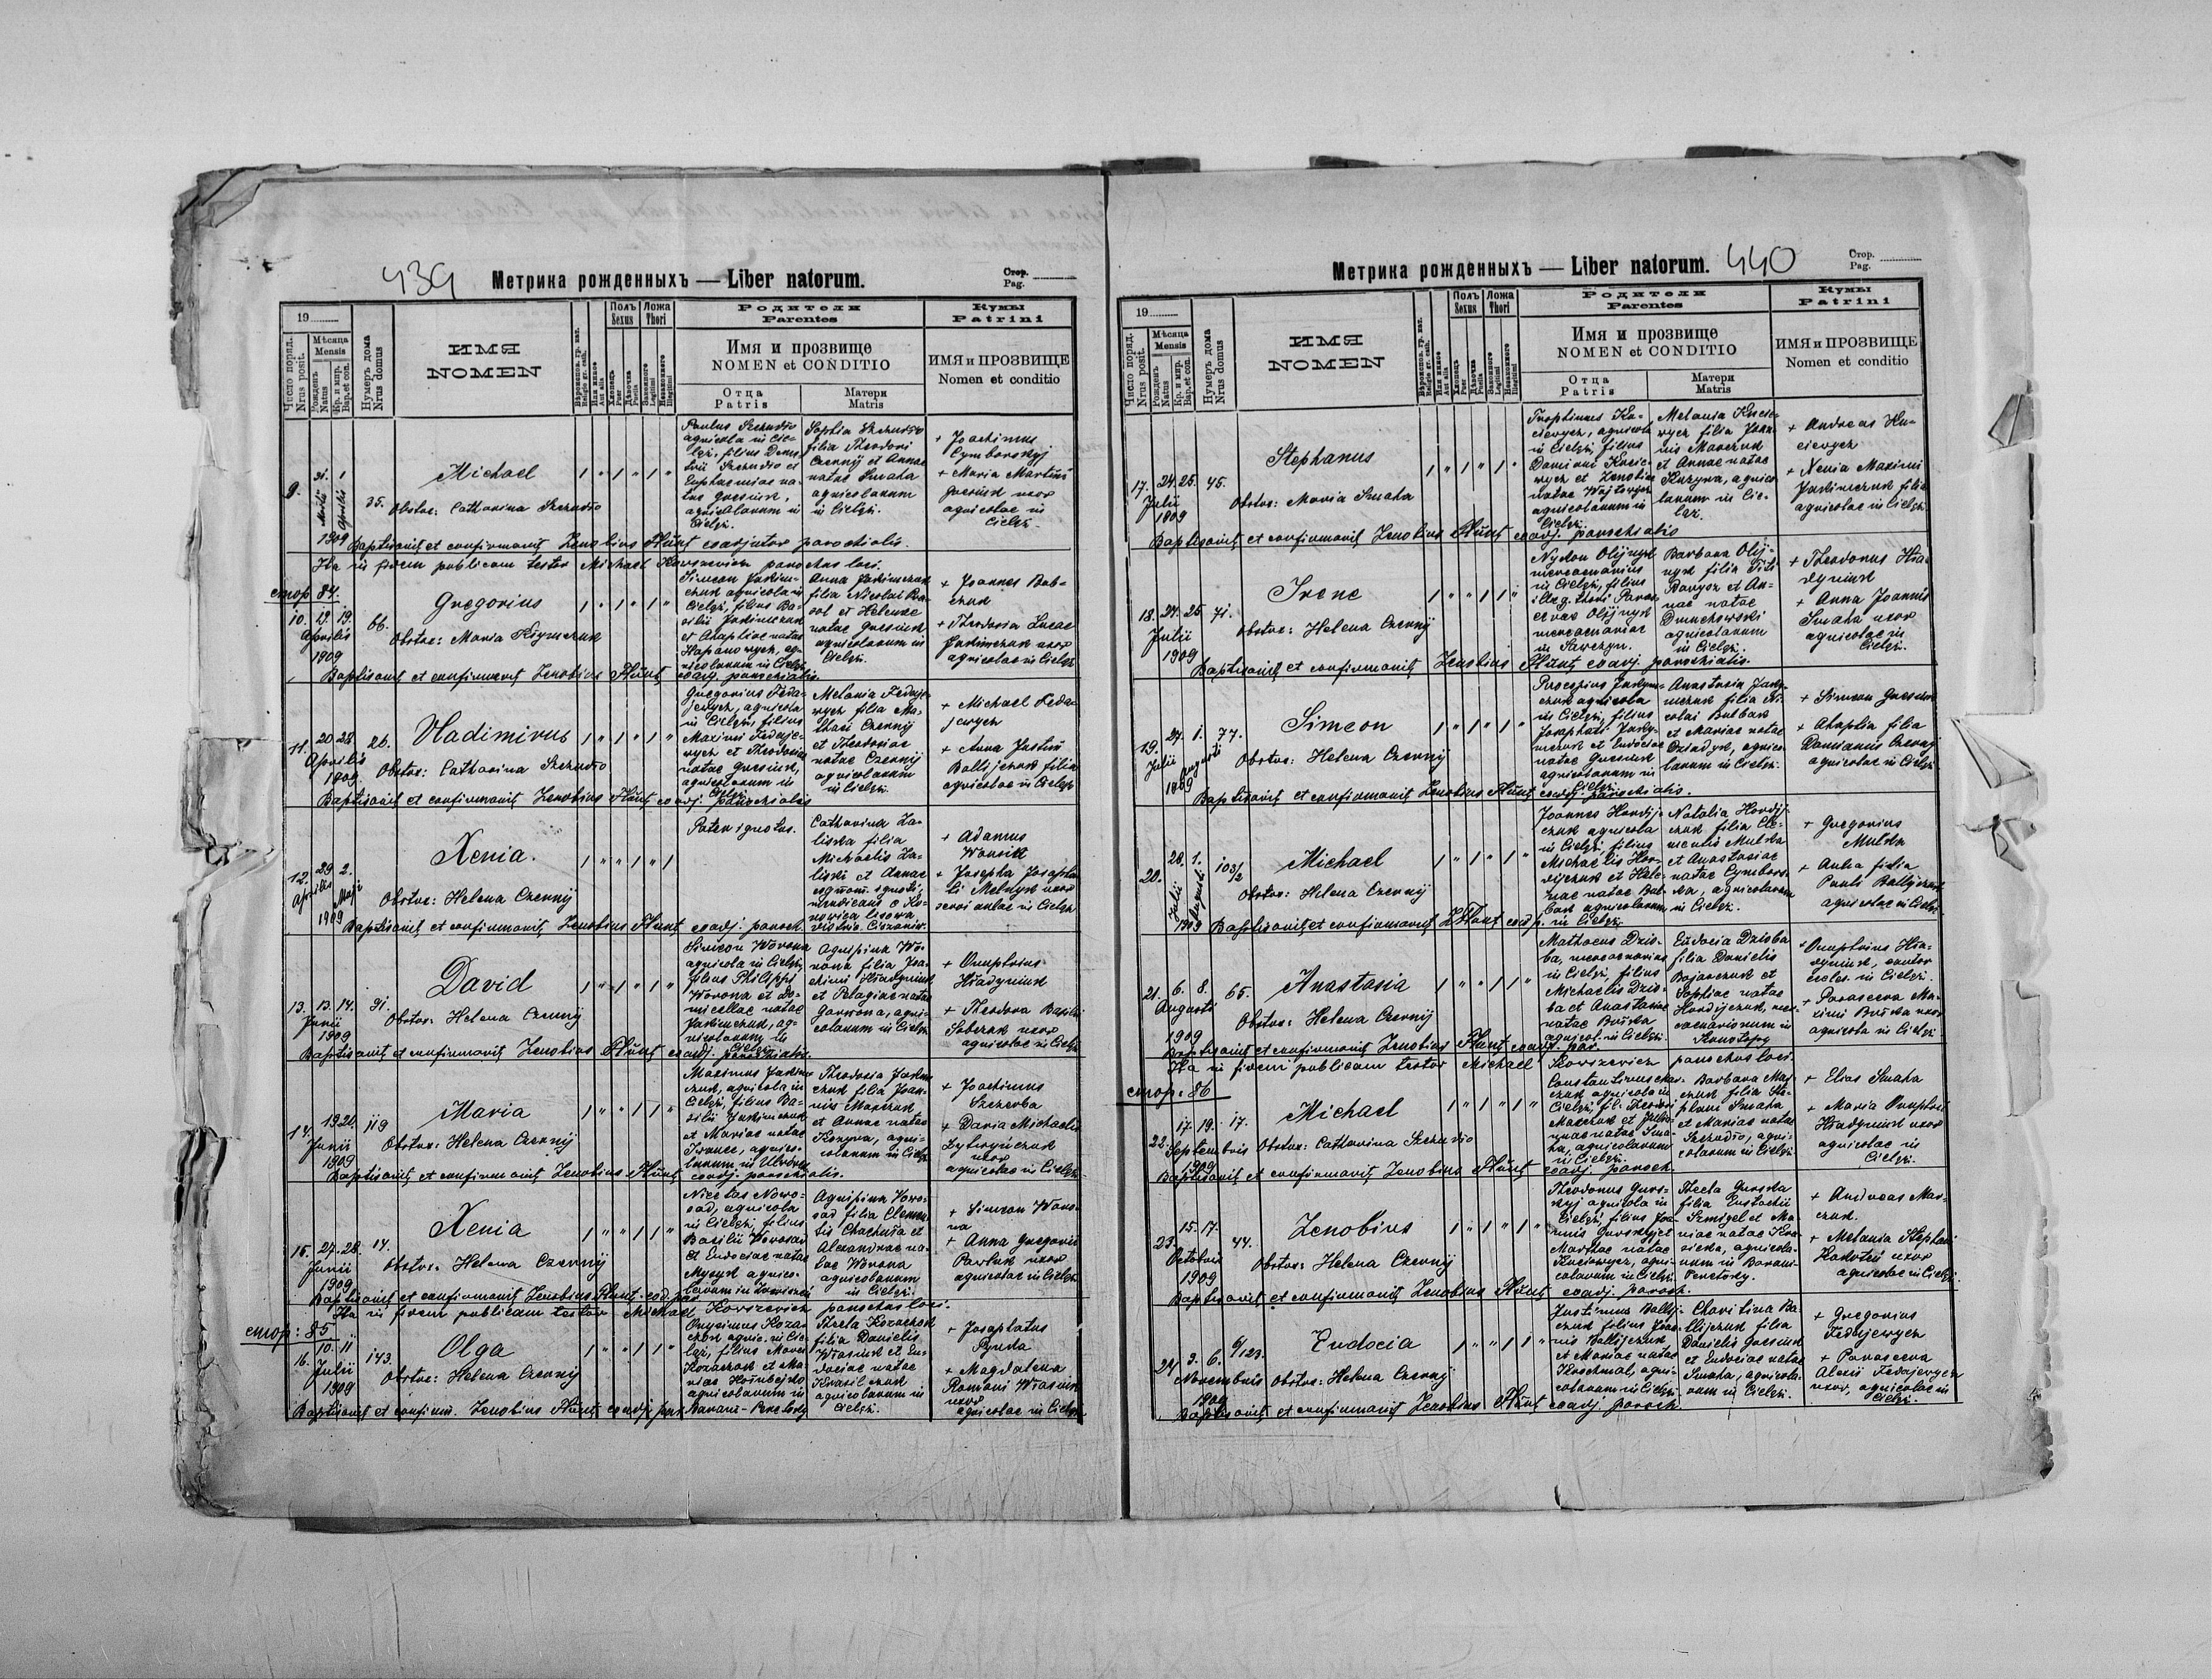 439
Метрика рожденныхъ — Liber natorum.
Стор.
Pag.
19
Число поряд.
Nrus posit.
Мѣсяца
Mensis
Рожденъ
Natus
Кр. и мир.
Bap. et con.
Нумеръ дома
Nrus domus
ИМЯ
NOMEN
Вѣроиспов. гр. кат.
Religio gr. cath.
Или иное
Aut alia
Полъ
Sexus
Хлопецъ
Puer
Дѣвочка
Puella
Ложа
Thori
Законного
Legitimi
Незаконного
Illegitimi
Родители
Parentes
Имя и прозвище
NOMEN et CONDITIO
Отца
Patris
Матери
Matris
Кумы
Patrini
ИМЯ и ПРОЗВИЩЕ
Nomen et conditio
9.
31. 1
Martii Aprilis
1909
35.
Michael
Obstce: Catharina Szchudło
Paulus Szchudło
agricola in Cie-
lęż, filius Deme-
trii Szchudło et
Euphaemiae na-
tae Gresiuk,
agricolarum in
Cielęż.
Sophia Szchudło
filia Theodori
Czernyj et Annae
natae Smaha
agricolarum
in Cielęż.
+ Joachimus
Cymborskyj
+ Maria Martini
Gresiuk uxor
agricolae in
Cielęż.
Baptisavit et confirmavit Zenobius Flünt coadjutor parochialis.
Ita in fidem publicam testor Michael Korszewicz parochus loci.
стор 84.
10.
19.
Aprilis
1909
66.
Gregorius
Obstce: Maria Klymczuk
Simeon Jakim-
czuk agricola in
Cielęż, filius Ba-
silii Jakimczuk
et Ahaphiae natae
Hapanowycz, ag-
ricolarum in Cielęż
Anna Jakimczuk
filia Nicolai
et Helenae
natae Gresiuk
agricolarum in
Cielęż.
+ Joannes Bab-
czuk
+ Theodosia Lucae
Jakimczuk uxor
agricolae in Cielęż
Baptisavit et confirmavit Zenobius Flünt coadj. parochialis.
11.
20 28
Aprilis
1909.
26.
Vladimirus
Obstce: Catharina Szchudło
Gregorius Feda-
jewycz, agricola
in Cielęż, filius
Maximi Fedaje-
wycz et Theodosiae
natae Gresiuk,
agricolarum in
Cielęż.
Melania Fedaje-
wycz filia Ma-
thaei Czernyj
et Theodosiae
natae Czernyj
agricolarum
in Cielęż.
+ Michael Feda-
jewycz
+ Anna Justini
Ballijczuk filia
agricolae in Cielęż
Baptisavit et confirmavit Zenobius Flünt coadj. parochialis
12.
29 2.
Aprilis Maji
1909
Xenia.
Obstce: Helena Czernyj
Pater ignotus.
Catharina Za-
liska filia
Michaelis Za-
liski et Annae
cognom. ignoti,
mendicans e Ko-
nowica lisowa
distric. Cieszanów.
+ Adamus
+ Josepha Josapha-
ti Melnyk uxor
servi aulae in Cielęż
Baptisavit et confirmavit Zenobius Flünt coadj. paroch.
13.
13. 14.
Junii
1909
91.
David
Obstce: Helena Czernyj
Simeon Worona
agricola in Cielęż,
filius Philippi
Worona et Do-
micellae natae
Jakimczuk, ag-
ricolarum in
Cielęż.
Agripina Wo-
rona filia Joa-
chimi Hładyniuk
et Pelagiae natae
Gawrona, agri-
colarum in Cielęż.
+ Onuphrius
Hładyniuk
+ Theodora Basilii
Sobczuk uxor
agricolae in Cielęż
Baptisavit et confirmavit Zenobius Flünt coadj. parochialis.
14.
19 20.
Junii
1909
119
Maria
Obstce: Helena Czernyj
Maximus Jakim-
czuk, agricola in
Cielęż, filius Ba-
silii Jakimczuk
et Mariae natae
agrico-
larum in Uhrynów
Theodosia Jakim-
czuk filia Joan-
nis Marczuk
et Annae natae
Kozyra, agri-
colarum in Cielęż
+ Joachimus
Szczerba
+ Daria Michaelis
uxor
agricolae in Cielęż.
Baptisavit et confirmavit Zenobius Flünt coadj. parochialis.
15.
27. 28.
Junii
1909.
14.
Xenia
Obstce: Helena Czernyj
Nicetas Nowo-
sad, agricola
in Cielęż, filius
Basilii Nowosad
et Eudociae natae
Mysyk agrico-
larum in
Agripina Nowo-
sad filia Clemen-
tis Chachuła et
Alexandrae na-
tae Worona
agricolarum
in Cielęż.
+ Simeon Woro-
na
+ Anna Gregorii
Pawluk uxor
agricolae in Cielęż
Baptisavit et confirmavit Zenobius Flünt coad. par.
Ita in fidem publicam testor Michael Korszewicz parochus loci.
стор: 85
16.
10. 11
Julii
1909
143.
Olga
Obstce: Helena Czernyj
Onysimus Koza-
czok agric. in Cie-
lęż, filius Marci
Kozaczok et Ma-
riae
agricolarum in
Baranie-Peretoky
Thecla Kozaczok
filia Danielis
Własiuk et Eu-
dociae natae
Krasilczuk
agricolarum in
Cielęż.
+ Josaphatus
Pynda
+ Magdalena
Romani Własiuk
uxor
agricolae in Cielęż.
Baptisavit et confirm. Zenobius Flünt coadj. par.
440
Метрика рожденныхъ — Liber natorum.
Стор.
Pag.
19
Число поряд.
Nrus posit.
Мѣсяца
Mensis
Рожденъ
Natus
Кр. и мир.
Bap. et con.
Нумеръ дома
Nrus domus
ИМЯ
NOMEN
Вѣроиспов. гр. кат.
Religio gr. cath.
Или иное
Aut alia
Полъ
Sexus
Хлопецъ
Puer
Дѣвочка
Puella
Ложа
Thori
Законного
Legitimi
Незаконного
Illegitimi
Родители
Parentes
Имя и прозвище
NOMEN et CONDITIO
Отца
Patris
Матери
Matris
Кумы
Patrini
ИМЯ и ПРОЗВИЩЕ
Nomen et conditio
17.
24. 25.
Julii
1909
45.
Stephanus
Obstce: Maria Smaha
agricola
in Cielęż, filius
Damiani
et Zenobiae
natae Wojtowycz
agricolarum in
Cielęż.
Melania
filia Joan-
nis Marczuk
et Annae natae
Kozyra, agrico-
larum in Cie-
lęż.
+ Andreas
+ Xenia Maximi
Jakimczuk filia
agricolae in Cielęż.
Baptisavit et confirmavit Zenobius Flünt coadj. parochialis
18.
24. 25
Julii
1909
71.
Irene
Obstce: Helena Czernyj
Nykon Olijnyk
mercenarius
in Cielęż, filius
illeg. thori Paras-
cevae Olijnyk
mercenariae
in
Barbara Olij-
nyk filia Titi
et An-
nae natae
Dmuchowski
agricolarum
in Cielęż.
+ Theodorus Hła-
dyniuk
+ Anna Joannis
Smaha uxor
agricolae in
Cielęż.
Baptisavit et confirmavit Zenobius Flünt coadj. parochialis.
19.
27. 1.
Julii Augusti
1909
77.
Simeon
Obstce: Helena Czernyj
Procopius
agricola
in Cielęż, filius
Josaphati
et Eudociae
natae Gresiuk
agricolarum in
Cielęż.
Anastasia
filia Ni-
colai Bulbas
et Mariae natae
Dziadyk, agrico-
larum in Cielęż.
+ Simeon Gresiuk
+ Ahaphia filia
Damianus Czernyj
agricolae in Cielęż
Baptisavit et confirmavit Zenobius Flünt coadj. parochialis.
20.
28. 1.
Julii Augusti
1909
103/2
Michael
Obstce: Helena Czernyj
Joannes Hordij-
czuk agricola
in Cielęż, filius
Michaelis Hor-
dijczuk et Hele-
nae natae Bul-
bas agricolarum
in Cielęż.
Natalia Hordij-
czuk filia Cle-
mentis Mulka
et Anastasiae
natae Cymbors-
ka, agricolarum
in Cielęż.
+ Gregorius
Mulka
+ Anna filia
Pauli Ballijczuk
agricolae in Cielęż
Baptisavit et confirmavit Z. Flünt coadj. p.
21.
6. 8.
Augusti
1909
65.
Anastasia
Obstce: Helena Czernyj
Mathaeus Dzio-
ba, mercenarius
in Cielęż, filius
Michaelis Dzio-
ba et Anastasiae
natae Bojko
agricol. in Cielęż.
Eudocia Dzioba
filia Danielis
Bojarczuk et
Sophiae natae
Hordijczuk, mer-
cenariorum in
Konotopy
+ Onuphrius Hła-
dyniuk, cantor
eccles. in Cielęż.
+ Parasceva Ma-
ximi uxor
agricola in Cielęż.
Baptisavit et confirmavit Zenobius Flünt coadj. par.
Ita in fidem publicam testor Michael Korszewicz parochus loci.
стор: 86
22.
17. 19.
Septembris
1909
17.
Michael
Obstce: Catharina Szchudło
Constantinus Mar-
czuk agricola in
Cielęż, fil. Theodori
Marczuk et
natae Sma-
ha, agricolarum
in Cielęż.
Barbara Mar-
czuk filia Ste-
phani Smaha
et Mariae natae
Szchudło, agri-
colarum in Cielęż.
+ Elias Smaha
+ Maria Onuphrii
Hładyniuk uxor
agricolae in
Cielęż.
Baptisavit et confirmavit Zenobius Flünt coadj. paroch.
23.
15. 17.
Octobris
1909
44.
Zenobius
Obstce: Helena Czernyj
Theodorus Gurs-
kyj agricola in
Cielęż, filius Joa-
nnis Gurskyj et
Marthae natae
agri-
colarum in Cielęż.
Thecla Gurska
filia Eustachii
Szmigel et Ma-
riae natae
agricola-
rum in Barani-
Peretoky.
+ Andreas Mar-
czuk.
+ Melania Stephani
uxor
agricolae in Cielęż.
Baptisavit et confirmavit Zenobius Flünt coadj. paroch.
24
3. 6.
Novembris
1909
6/123.
Eudocia
Obstce: Helena Czernyj
Justinus Ballij-
czuk filius Joan-
nis Ballijczuk
et Mariae natae
Krochmal, agri-
colarum in Cielęż.
Charitina Ba-
llijczuk filia
Danielis Gresiuk
et Eudociae natae
Smaha, agricola-
rum in Cielęż.
+ Gregorius
Fedajewycz
+ Parasceva
Alexii Fedajewycz
uxor, agricolae in
Cielęż.
Baptisavit et confirmavit Zenobius Flünt coadj. paroch.